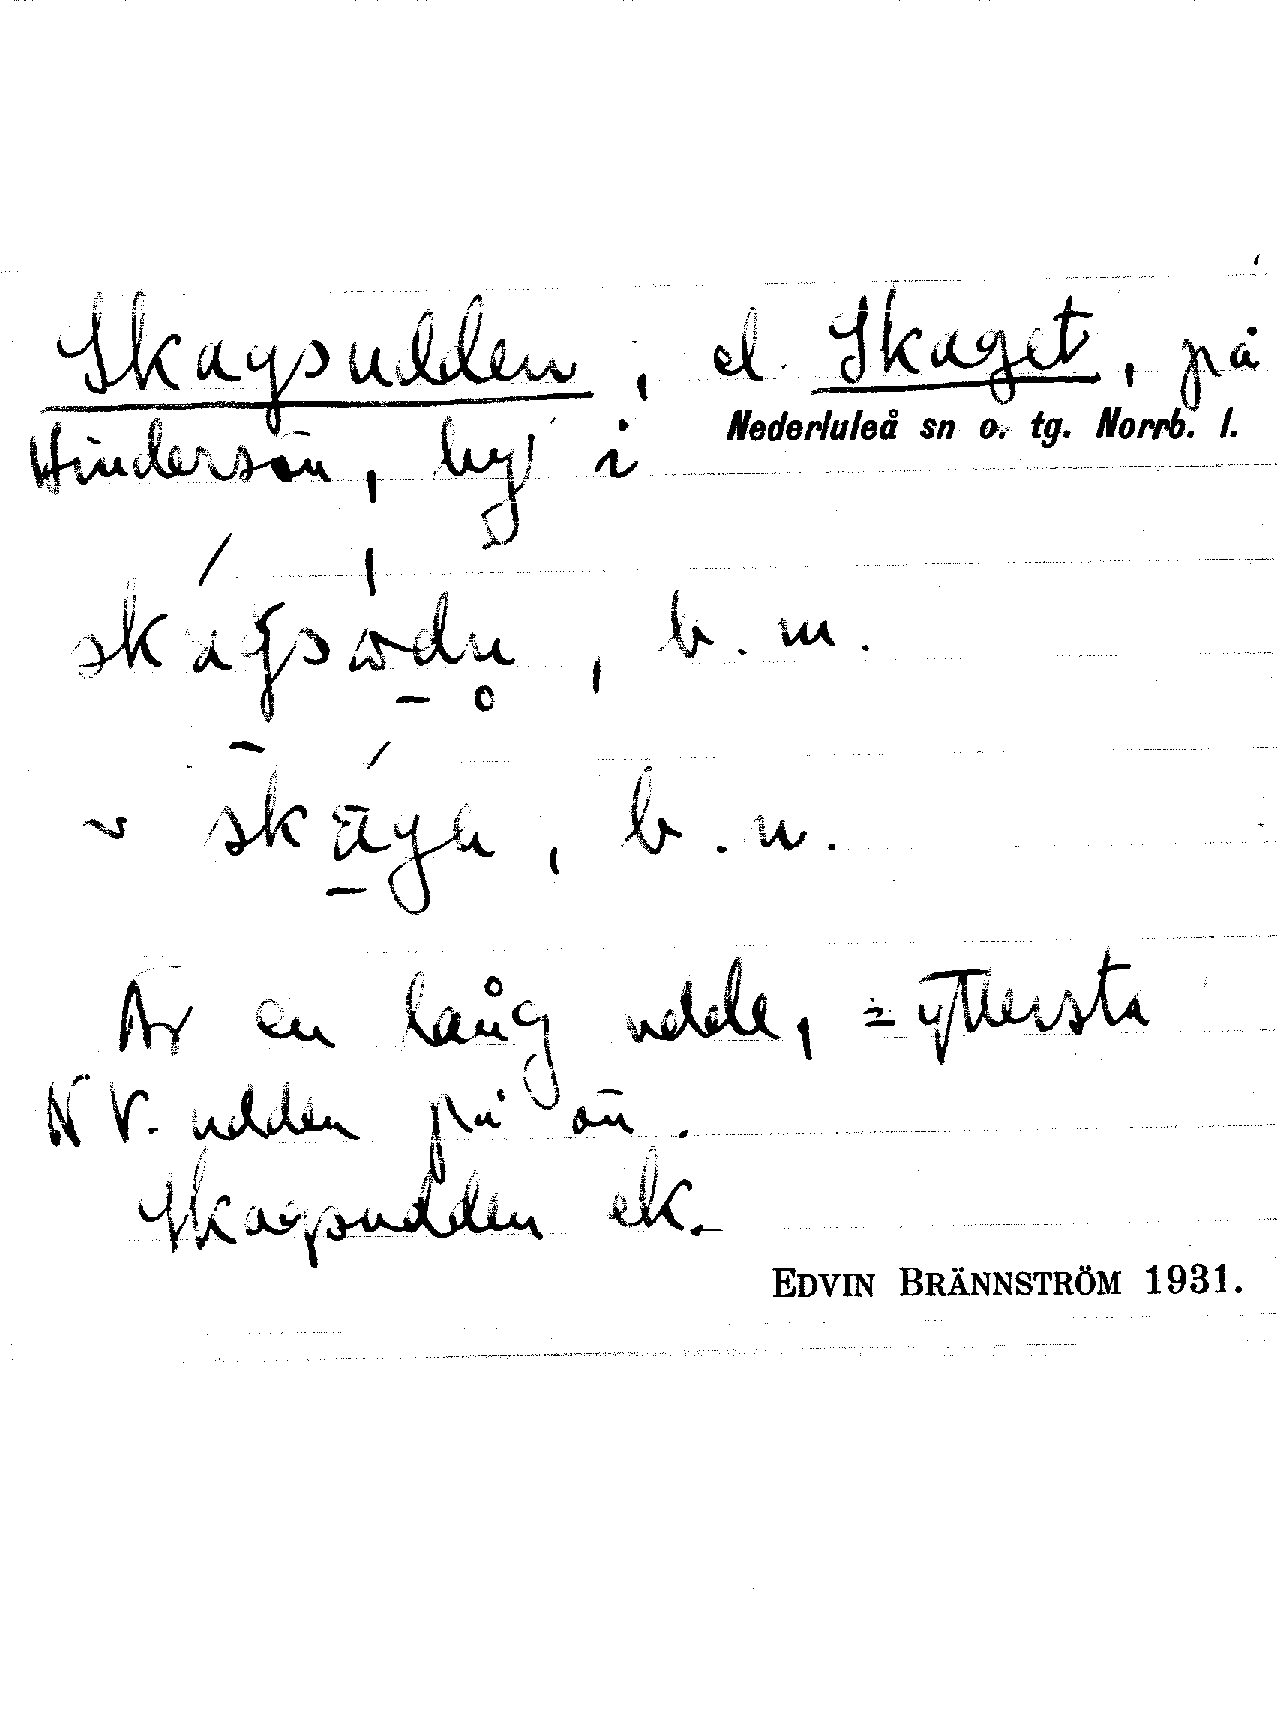 Skagsudden, el. Skaget, på
Nederluleå sn o. tg. Norrb. l.
Hindersön, by i
skágsωdn̥, b. m.
~ skāga, b. n.
Är en lång udde, = yttersta
NV. udden på ön.
Skagsudden ek.
EDVIN BRÄNNSTRÖM 1931.